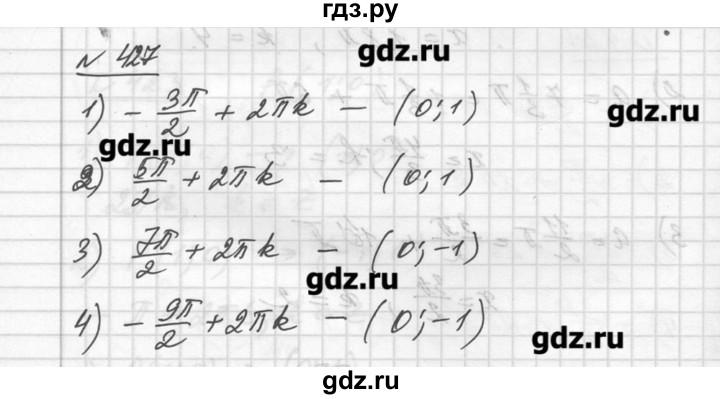 гдз.ру
№ 427
gdz.ru
1) - 3π/2 + 2πk — (0; 1)
gdz.ru
gdz.ru
2) 5π/2 + 2πk — (0; 1)
3) 7π/2 + 2πk — (0; -1)
gdz.ru
4) - 9π/2 + 2πk — (0; -1)
gdz.ru
gdz.ru